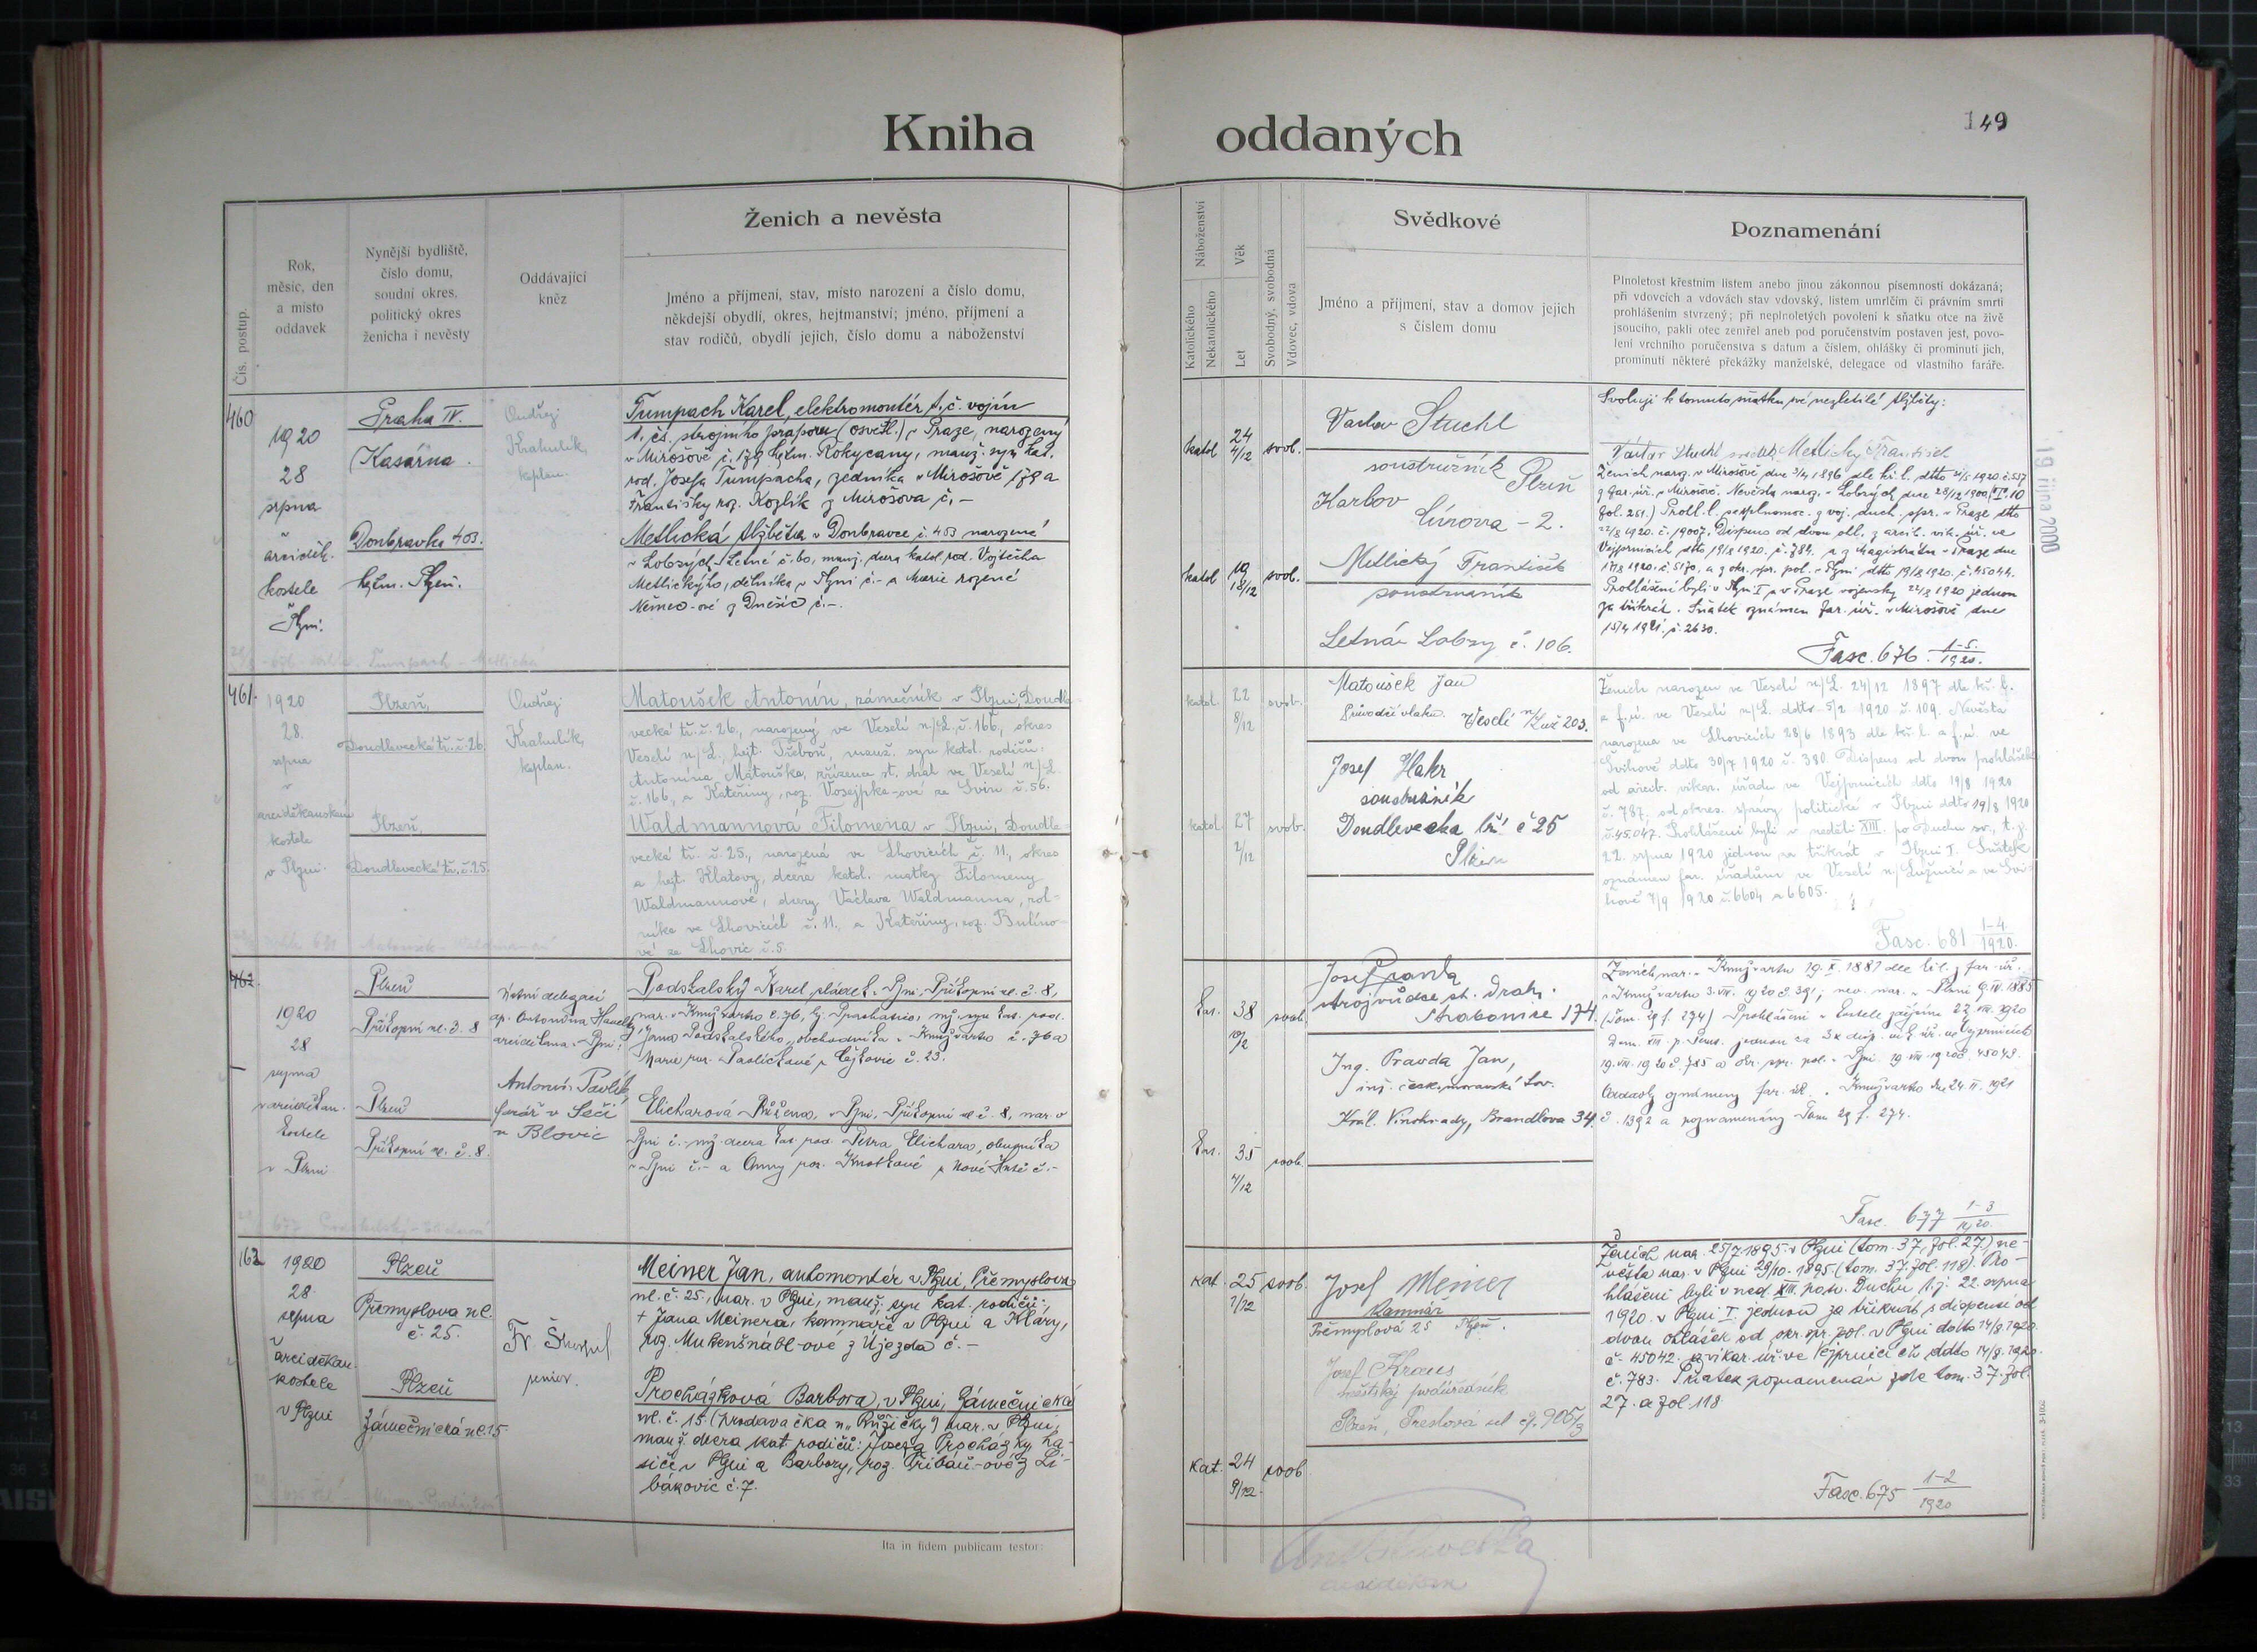 Kniha
oddaných
149
Čís. postup.
Rok,
měsíc, den
a místo
oddavek
Nynější bydliště,
číslo domu,
soudní okres,
politický okres
ženicha i nevěsty
Oddávající
kněz
Ženich a nevěsta
Jméno a příjmení, stav, místo narození a číslo domu,
někdejší obydlí, okres, hejtmanství; jméno, příjmení a
stav rodičů, obydlí jejich, číslo domu a náboženství
Náboženství
Katolického
Nekatolického
Věk
Let
Svobodný, svobodná
Vdovec, vdova
Svědkové
Jméno a příjmení, stav a domov jejich
s číslem domu
Poznamenání
Plnoletost křestním listem anebo jinou zákonnou písemností dokázaná;
při vdovcích a vdovách stav vdovský, listem umrlčím či právním smrti
prohlášením stvrzený; při neplnoletých povolení k sňatku otce na živě
jsoucího, pakli otec zemřel aneb pod poručenstvím postaven jest, povo-
lení vrchního poručenstva s datum a číslem, ohlášky či prominutí jich,
prominutí některé překážky manželské, delegace od vlastního faráře.
460
1920
28
srpna
v
arciděk.
kostele
Plzni.
Praha IV.
Kasárna.
Doubravka 403.
hejtm. Plzeň.
Ondřej
Krahulík,
kaplan.
Tumpach Karel, elektromontér t. č. vojín
1. čs. strojního praporu (osvětl.) v Praze, narozený
v Mirošově č. 179 hejtm. Rokycany, manž. syn kat.
rod. Josefa Tumpacha, zedníka v Mirošově 179 a
Františky roz. Kozlík z Mirošova č. -
Metlická Alžběta v Doubravce č. 403 narozená
v Lobzých Letné č. 60, manž. dcera katol. rod. Vojtěcha
Metlického, dělníka v Plzni č. - a Marie rozené
Němec-ové z Dnešic č. -.
katol
24
4/12
svob.
katol
19
18/12
svob.
Vaclav Stuchl
soustružník
Karlov Plzeň
Metlický František
soustružník
Letná Lobzy č. 106.
Svoluji k tomuto sňatku své nezletilé Alžběty:
Václav Stuchl svědek Metlický František
Ženich naroz. v Mirošově dne 3/4 1896 dle kř. l.
z far. úř. v Mirošově. Nevěsta naroz. v Lobzých dne 28/12 1900
fol. 261.)
22/8 1920. č. 19007. Dispens od dvou ohl. z arcib. vik. úř. ve
Vejprnicích ddto 19/8 1920. č. 784. a z Magistrátu v Praze dne
17/8 1920. č. 5170. a z okr. spr. pol. v Plzni ddto 19/8 1920. č. 45044.
Prohlášeni byli v Plzni I a v Praze vojensky 22/8 1920 jednou
za třikrát. Sňatek oznámen far. úř. v Mirošově dne
15/4 1921. č. 2630.
Fasc. 676. 1-5./1920.
19 října 2000
461.
1920
28.
srpna
v
arciděkanském
kostele
v Plzni.
Plzeň,
Doudlevecká tř. č. 26.
Plzeň,
Doudlevecká tř. č. 25.
Ondřej
Krahulík,
kaplan.
Matoušek Antonín, zámečník v Plzni, Doudle-
vecká tř. č. 26., narozený ve Veselí n/L. č. 166, okres
Veselí n/L., hejt. Třeboň, manž. syn katol. rodičů:
Antonína Matouška, zřízence st. drah ve Veselí n/L.
č. 166., a Kateřiny, roz. Vosejpka-ové ze Svin č. 56.
Waldmannová Filomena v Plzni, Doudle-
vecká tř. č. 25., narozená ve Lhovicích č. 11., okres
a hejt. Klatovy, dcera katol. matky Filomeny
Waldmannové, dcery Václava Waldmanna, rol-
níka ve Lhovicích č. 11., a Kateřiny, roz. Bulíno-
vé ze Lhovic č. 5.
katol.
22
8/12
svob.
katol.
27
2/12
svob.
Matoušek Jan
Průvodčí vlaku. Veselí n/Luž 203.
Josef Hakr
soustružník
Doudlevecka tř. č 25
Plzen
Ženich narozen ve Veselí n/L. 24/12 1897 dle kř. l.
a f. ú. ve Veselí n/L. ddto 5/2 1920 č. 109. Nevěsta
narozena ve Lhovicích 28/6 1893 dle kř. l. a f. ú. ve
Švihově ddto 30/7 1920 č. 380. Dispens od dvou prohlášek
od arcib. vikar. úřadu ve Vejprnicích ddto 19/8 1920
č. 787; od okres. správy politické v Plzni ddto 19/8 1920
č. 45.047. Prohlášeni byli v neděli XIII. po Duchu sv., t. j.
22. srpna 1920 jednou za třikrát v Plzni I. Sňatek
oznámen far. úřadům ve Veselí n/Lužnicí a ve Švi-
hově 7/9 1920 č. 6604 a 6605.
Fasc. 681 1-4./1920.
462.
1920
28
srpna
v arciděkan.
kostele
v Plzni
Plzeň
Příkopní ul. č. 8
Plzeň
Příkopní ul. č. 8.
Ústní delegací
arciděkana v Plzni:
Antonín Pavlík,
farář v Seči
u Blovic
Podskalský Karel, v Plzni, Příkopní ul. č. 8,
nar. v Kruž. č. 76, hj. Prachatice, mž. syn kat. rod.
Jana Podskalského, obchodníka v č. 76 a
Marie roz. Pavlíčkové z Čejkovic č. 23.
Elicharová Růžena, v Plzni, Příkopní ul. č. 8, nar. v
Plzni č. - mž. dcera kat. rod. Petra Elichara, obuvníka
v Plzni č. - a Anny roz. Knotkové z Nové Huti č. -
kat.
38
10/12
svob.
kat.
35
4/12
svob.
Josef Pravda
strojvůdce st. drah.
Strakonice 174.
Ing. Pravda Jan,
inž. česk. moravské tov.
Král. Vinohrady, Brandlova 34.
Ženich nar. v 19. X. 1881 dle far. úř.
3. VII. 1920 č. 391; nev. nar. v Plzni 9. IV. 1885
(Tom. 29 f. 274) Prohlášeni v kostele zdejším 22. VIII. 1920
Dom. XIII. p. Pent. jednou za 3x disp. vik. úř. ve Vejprnicích
19. VIII. 1920 č. 785 a okr. spr. pol. v Plzni 19. VIII. 1920 č. 45043.
Oddavky oznámeny far. úř. v dne 24. II. 1921
č. 1392 a poznamenány Tom 29 f. 274.
Fasc. 677 1-3/1920.
463
1920
28
srpna
v
arciděkan.
kostele
v Plzni
Plzeň
Přemyslova ul.
č. 25.
Plzeň
Zámečnická ul. 15
Fr.
senior.
Meiner Jan, automontér v Plzni, Přemyslova
ul. č. 25., nar. v Plzni, manž. syn kat. rodičů:
+ Jana Meinera, kamnáře v Plzni a Kláry,
roz. Mukenšnábl-ové z Újezda č. -
Procházková Barbora, v Plzni, Zámečnická
ul. č. 15. (prodavačka u „Růžičky") nar. v Plzni,
manž. dcera kat. rodičů: Josefa Procházky, ha-
siče v Plzni a Barbory, roz. Tribáň-ové z Li-
bákovic č. 7.
Kat.
25
1/12
svob.
Kat.
24
9/12.
svob
Josef Meiner
Kamnář
Přemyslová 25 Plzeň.
Josef Kraus
městský podúředník
Plzeň, Preslová ul čp. 905/3
Ženich nar. 25/7 1895 v Plzni (tom. 37, fol. 27,) ne-
věsta nar. v Plzni 29/10. 1895 (tom. 37. fol. 118). Pro-
hlášeni byli v ned. XIII. po sv. Duchu t. j. 22. srpna
1920. v Plzni I. jednou za třikrát s dispensí od
dvou ohlášek od okr. spr. pol. v Plzni ddto 14/8. 1920.
č. 45042. a vikar. úř. ve Vejprnicích ddto 14/8. 1920.
č. 783. Sňatek poznamenán zde tom. 37. fol.
27. a fol. 118
Fasc. 675 1-2/1920
Ita in fidem publicam testor:
arciděkan